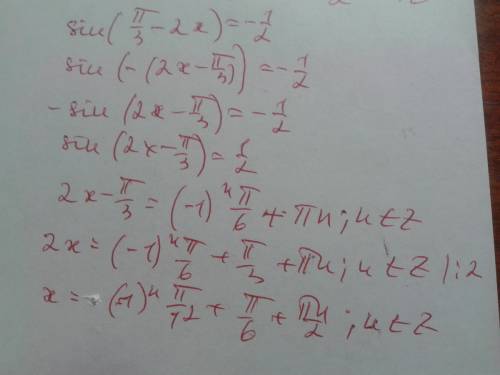 sin(π/3 - 2x) = -1/2
sin(-(2x - π/3)) = -1/2
-sin(2x - π/3) = -1/2
sin(2x - π/3) = 1/2
2x - π/3 = (-1)ⁿ π/6 + πn; n ∈ Z
2x = (-1)ⁿ π/6 + π/3 + πn; n ∈ Z |:2
x = (-1)ⁿ π/12 + π/6 + πn/2; n ∈ Z